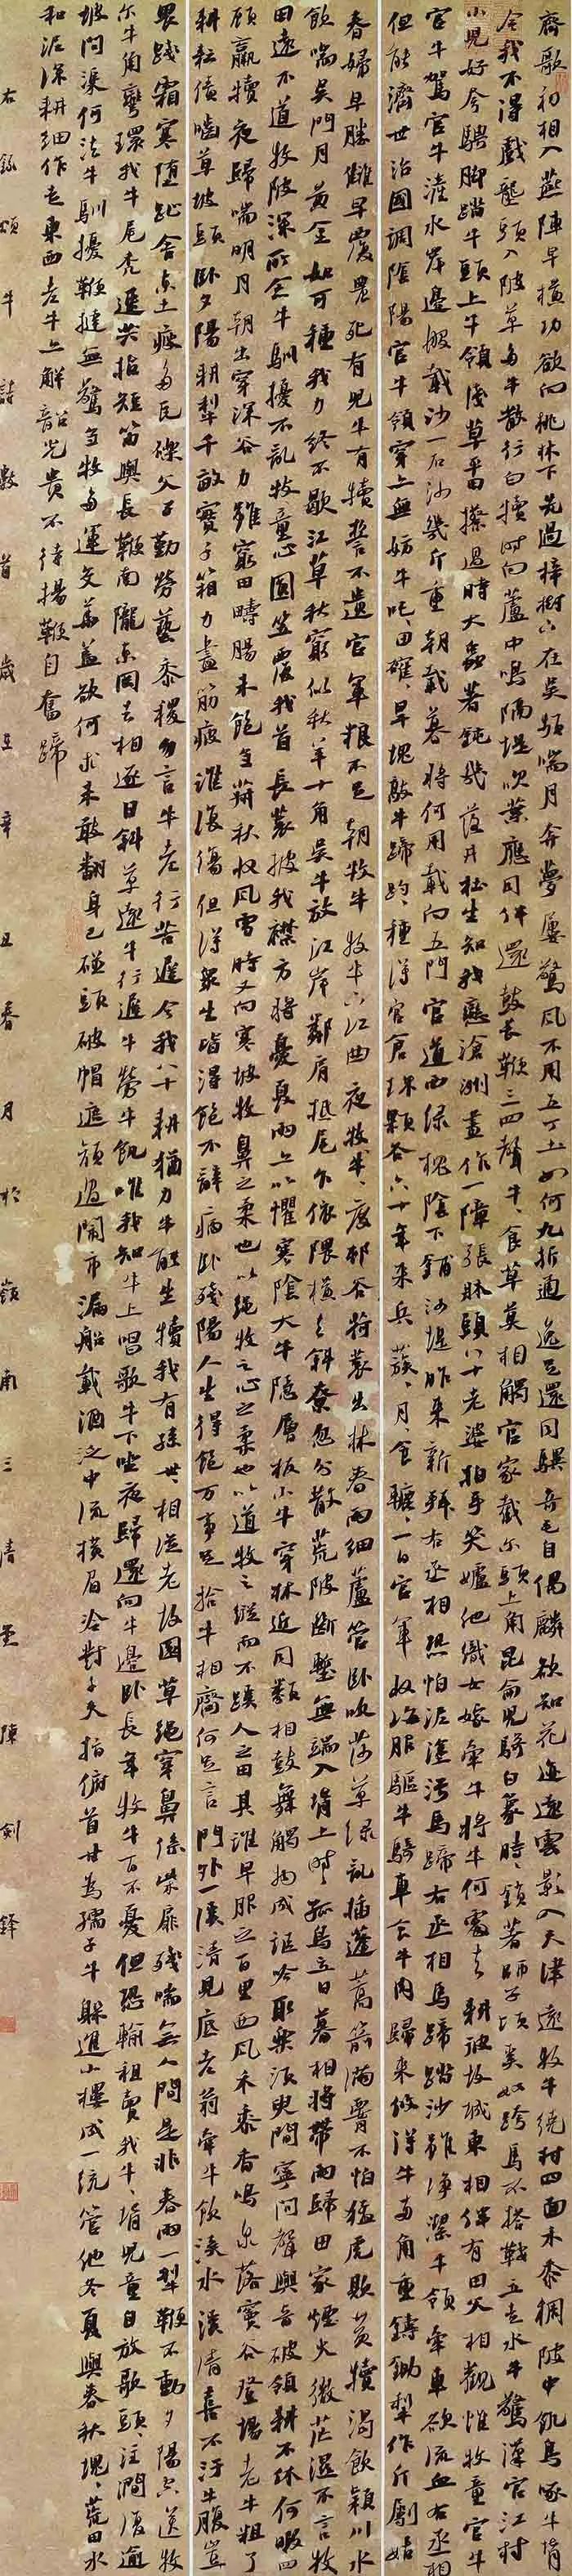 齊歌初相入燕陣早橫功欲向桃林下先過梓樹穴在吳頻喘月奔夢屢驚風不用五丁士如何九折通逸足還同驥奇毛自偶麟欲知花迹遠雲影入天津遠牧牛繞村四面禾黍稠陂中飢烏啄牛背
令我不得戲壟頭入陂草多牛散行白犢時向蘆中鳴隔堤吹葉應同伴還鼓長鞭三四聲牛牛食草莫相觸官家截爾頭上角昆侖兒騎白象時時鎖著師子項奚奴跨馬不搭鞍立走水牛驚漢官江村
小兒好夸騁腳踏牛頭上牛領淺草平田擦過時大蟲著鈍幾落井杜生知我戀滄洲畫作一障張牀頭八十老婆拍手笑妒他織女嫁牽牛將牛何處去耕彼故城東相伴有田父相歡惟牧童官牛
官牛駕官牛滻水岸邊搬載沙一石沙幾斤重朝載暮將何用載向五門官道西綠槐陰下鋪沙堤昨來新拜右丞相恐怕泥塗污馬蹄右丞相馬蹄踏沙雖淨潔牛領牽車欲流血右丞相
但能濟世治國調陰陽官牛領穿亦無妨牛吒吒田確確旱塊敲牛蹄趵趵種得官倉珠顆谷六十年來兵蔟蔟月月食糧一日官軍收海服驅牛騎車食牛肉歸來收得牛兩角重鑄鋤犁作斤劚姑
舂婦早勝雖早農農死有兒牛有犢誓不遣官軍糧不足朝牧牛牧牛下江曲夜牧牛牧牛度村谷荷蓑出林春雨細蘆管臥吹莎草綠亂插蓬蒿箭滿腰不怕猛虎欺黃犢渴飲潁川水
飲喘吳門月黃金如可種我力終不歇江草秋窮似秋半十角吳牛放江岸鄰肩抵尾乍依隈橫去斜奔忽分散荒陂斷塹無端入背上時時孤烏立日暮相將帶雨歸田家煙火微茫濕不言牧
田遠不道牧陂深所念牛馴擾不亂牧童心圓笠覆我首長蓑披我襟方將憂夏雨亦以懼寒陰大牛隱層坂小牛穿林近同類相鼓舞觸物成謳吟取樂須臾間寧問聲與音破領耕不休何暇四
顧羸犢夜歸喘明月朝出穿深谷力雖窮田疇腸未飽芻菽秋收風雪時又向寒坡牧鼻之柔也以繩牧之心之柔也以道牧之縱而不蹊人之田其誰早服之百里西風禾黍香鳴泉落竇谷登場老牛粗了
耕耘債嚙草坡頭臥夕陽耕犁千畝實千箱力盡筋疲誰復傷但得眾生皆得飽不辭病臥殘陽人生得飽萬事足拾牛相齊何足言門外一溪清見底老翁牽牛飲溪水溪清喜不污牛腹豈
畏踐霜寒墮趾舍東土瘦多瓦礫父子勤勞藝黍稷勿言牛老行苦遲今我八十耕猶力牛能生犢我有孫世世相從老故園草繩穿鼻係柴扉殘喘無人問是非春雨一犁鞭不動夕陽空送牧
爾牛角彎環我牛尾禿速共拈短笛與長鞭南隴東岡去相逐日斜草遠牛行遲牛勞牛飢唯我知牛上唱歌牛下坐夜歸還向牛邊臥長年牧牛百不憂但恐輸租賣我牛牛背兒童自放歌頭頭注澗復逾
坡問渠何法牛馴擾鞭撻無驚芻牧多運交華蓋欲何求未敢翻身已碰頭破帽遮顏過鬧市漏船載酒泛中流橫眉冷對千夫指俯首甘為孺子牛躲進小樓成一統管他冬夏與春秋塊塊荒田水
和泥深耕細作走東西老牛亦解韶光貴不待揚鞭自奮蹄
右錄頌牛詩數首歲在辛丑春月於嶺南三清堂陳劍鐸